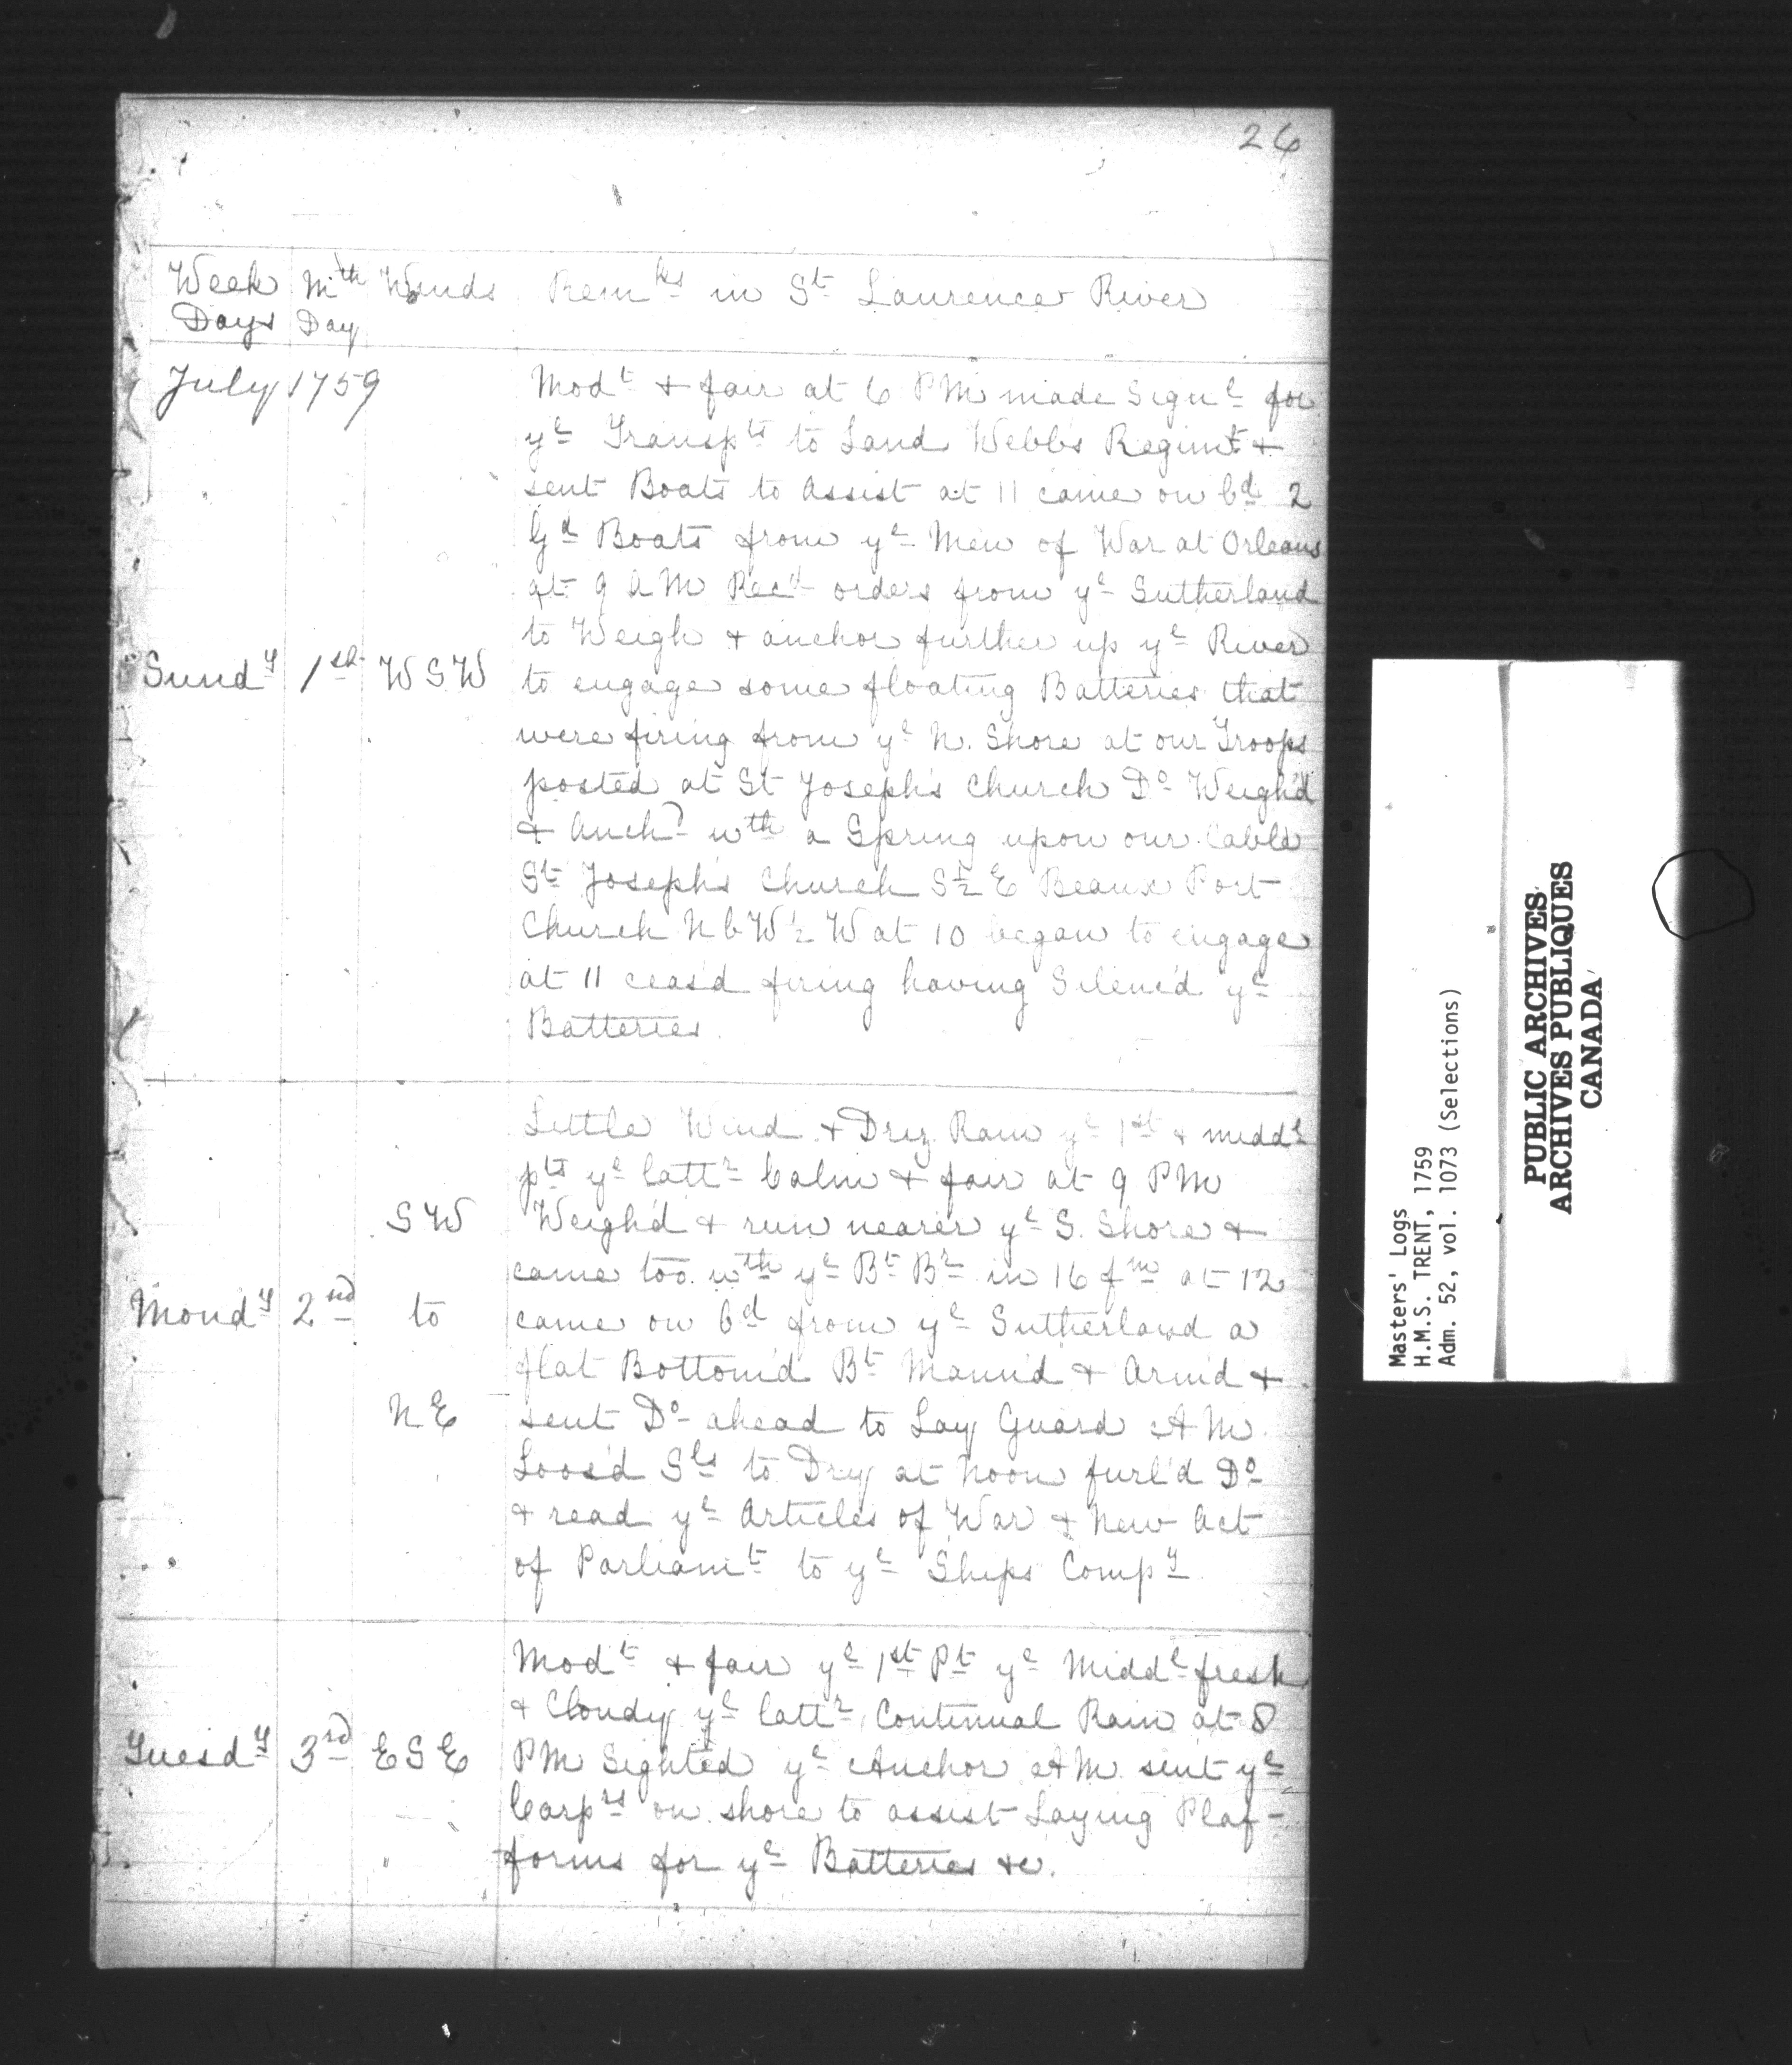 26
Week Mth Winds Remks in St Laurence River
Days Day
July 1759
Modt & fair at 6 PM made Signl for
ye Transpts to Land Webbs Regimt &
sent Boats to Assist at 11 came on bd 2
Gd Boats from ye Men of War at Orleans
at 9 AM Recd orders from ye Sutherland
to Weigh & anchor further up ye River
Sundy 1st WSW to engage some floating Batteries that
were firing from ye N. Shore at our Troops
posted at St Joseph's Church Do Weigh'd
& Anchd wth a Spring upon our Cable
St Joseph's Church S½E Beaux Port
Church NbW½W at 10 began to engage
at 11 ceas'd firing having Silenc'd ye
Batteries.
Little Wind & Driz Rain ye 1st & middl
pts ye lattr Calm & fair at 9 PM
SW Weigh'd & run nearer ye S. Shore &
came too wth ye Bt Br in 16 fm at 12
Mondy 2nd to came on bd from ye Sutherland a
flat Bottom'd Bt Mann'd & Arm'd &
NE sent Do ahead to Lay Guard AM
Loos'd Sls to Dry at Noon furl'd Do
& read ye Articles of War & New Act
of Parliamt to ye Ships Compy
Modt & fair ye 1st Pt ye Middl fresh
& Cloudy ye lattr Continual Rain at 8
Tuesdy 3rd ESE PM Sighted ye Anchor AM sent ye
Carprs on shore to assist Laying Plaf-
forms for ye Batteries &c.
Masters' Logs
H.M.S. TRENT, 1759
Adm. 52, vol. 1073 (Selections)
PUBLIC ARCHIVES
ARCHIVES PUBLIQUES
CANADA